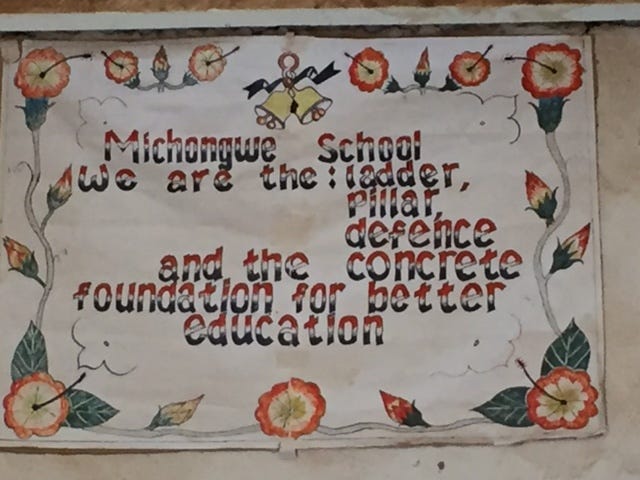 Michongwe School
we are the : ladder,
pillar,
defence
and the concrete
foundation for better
education